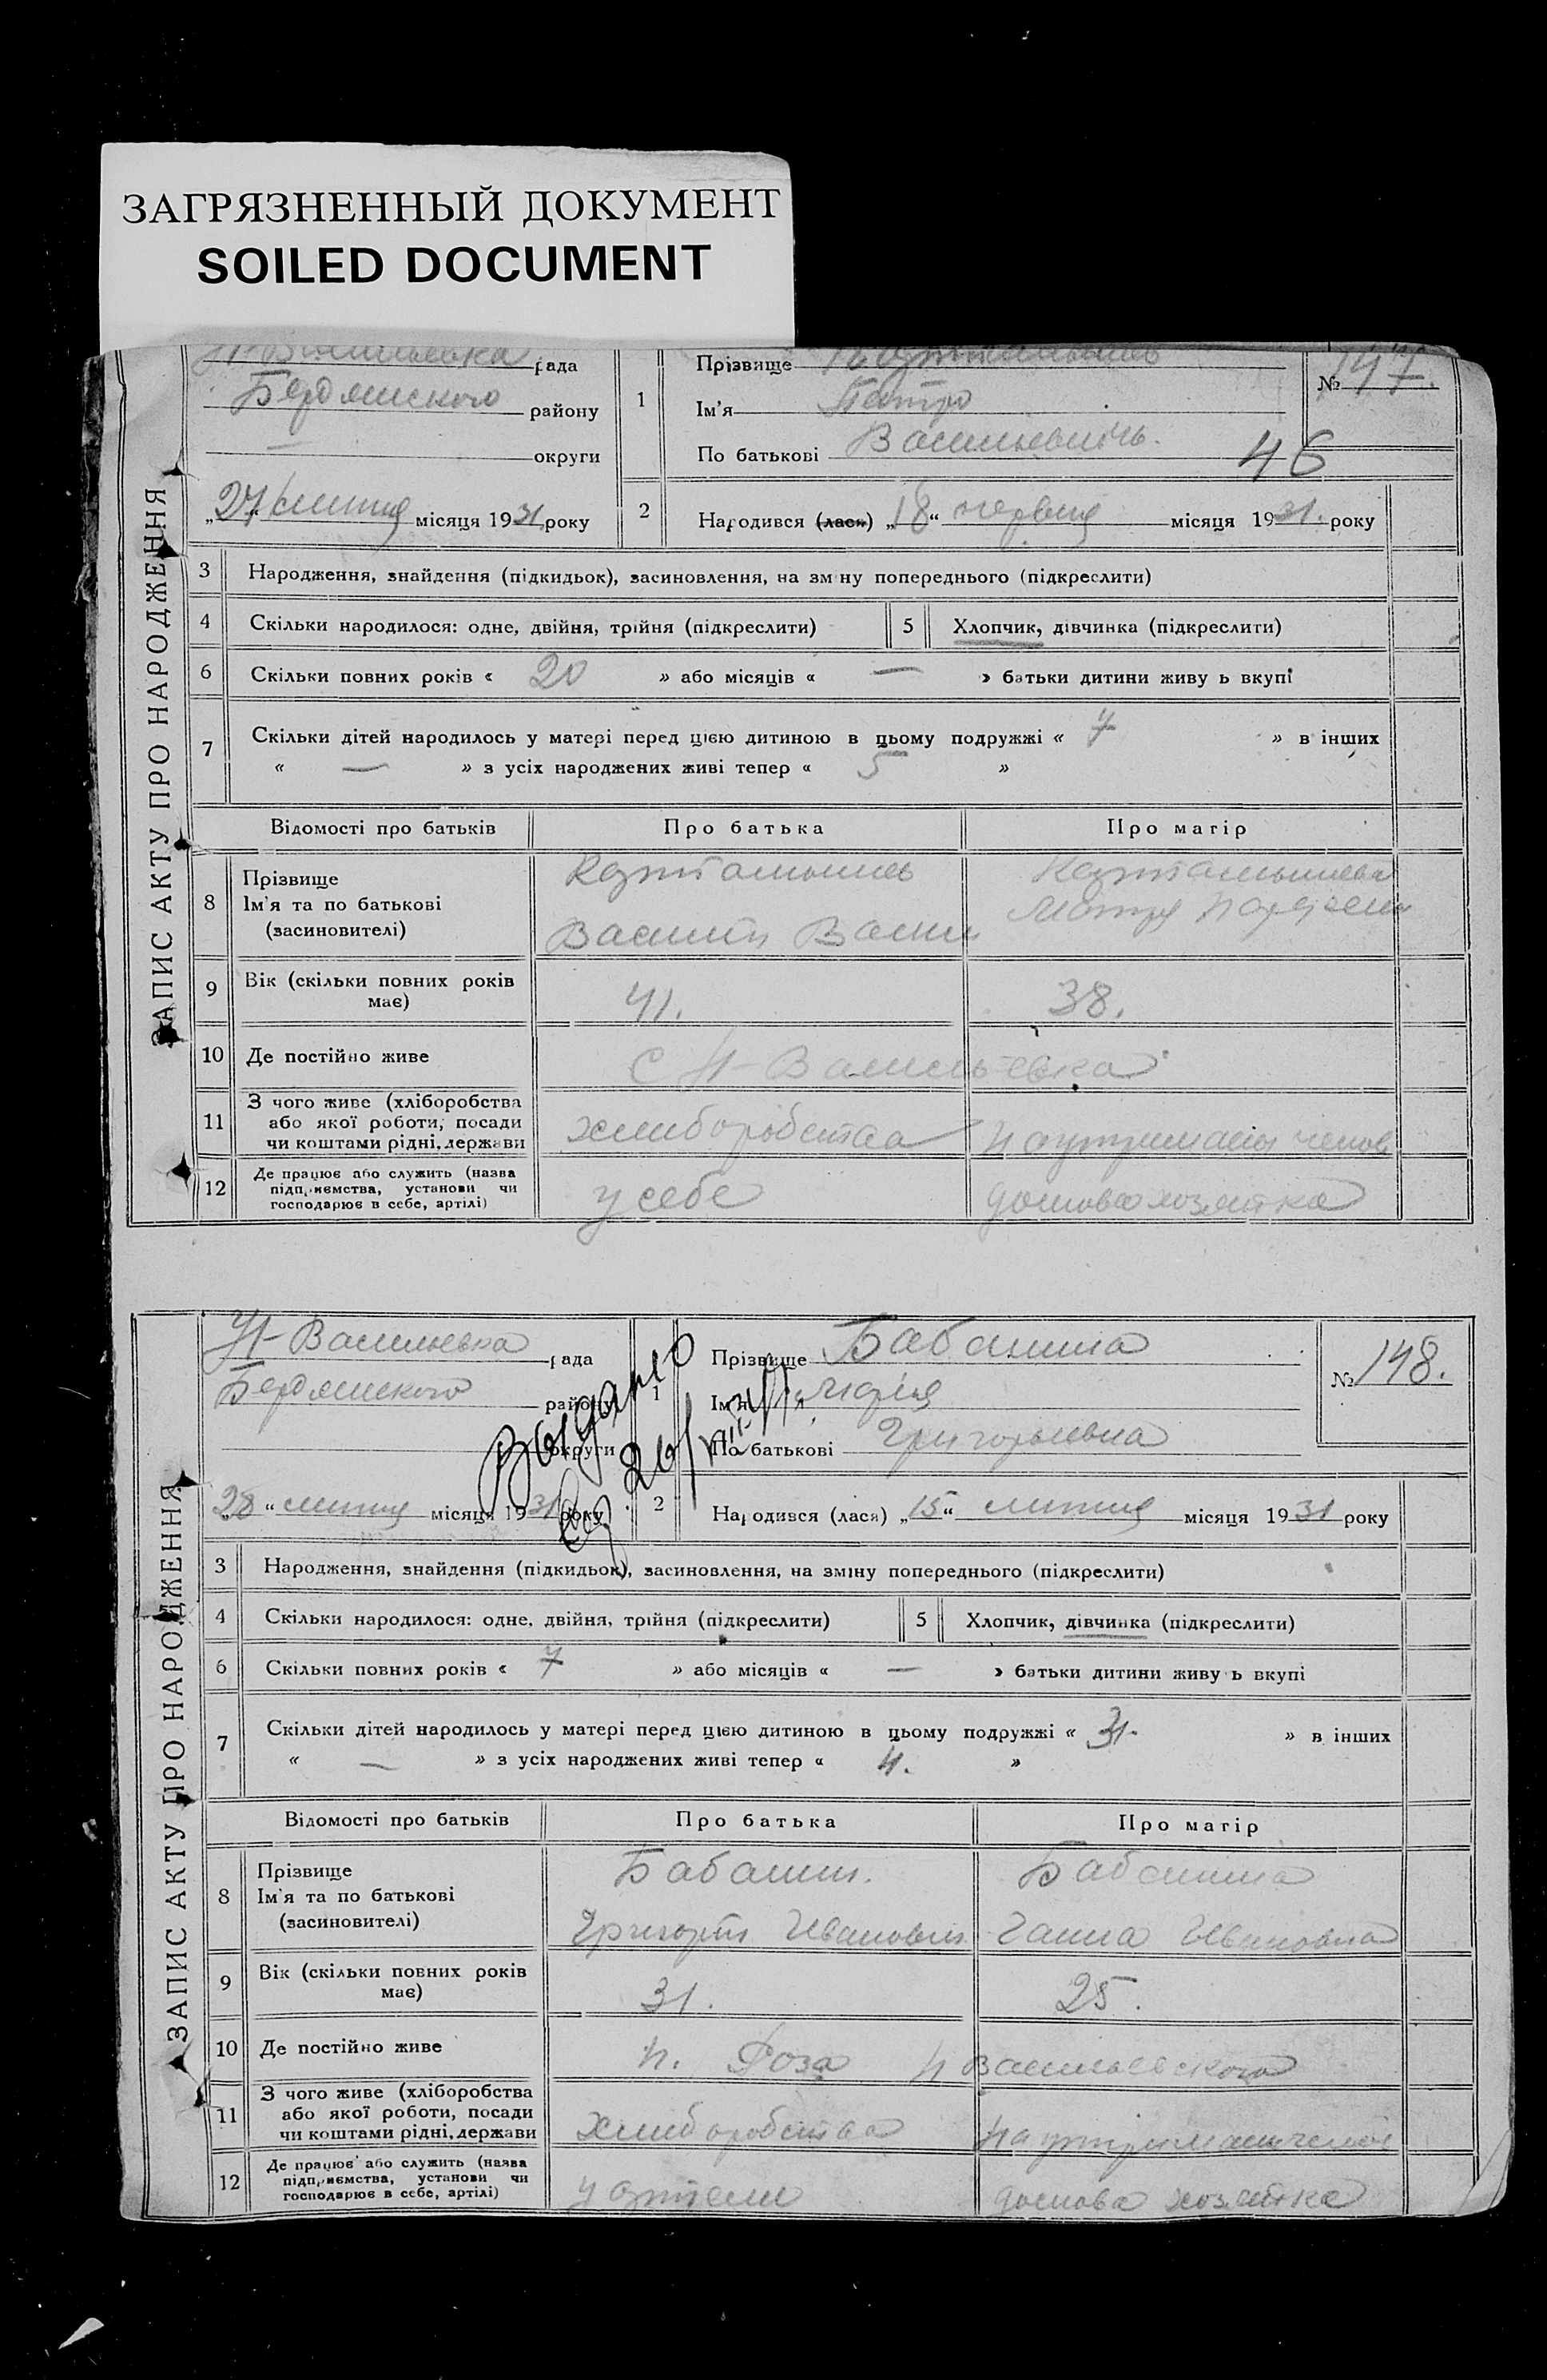 ЗАГРЯЗНЕННЫЙ ДОКУМЕНТ
SOILED DOCUMENT
ЗАПИС АКТУ ПРО НАРОДЖЕННЯ
Н-Васильевка рада
Бердянського району
— округи
„27“ липня місяця 1931 року
1 Прізвище
Ім'я Петро
По батькові Васильевичь.
№ 147.
46
2 Народився (лася) „18“ червня місяця 1931. року
3 Народження, знайдення (підкидьок), засиновлення, на зміну попереднього (підкреслити)
4 Скільки народилося: одне, двійня, трійня (підкреслити) 5 Хлопчик, дівчинка (підкреслити)
6 Скільки повних років « 20 » або місяців « — » батьки дитини живу ь вкупі
7 Скільки дітей народилось у матері перед цією дитиною в цьому подружжі « 7 » в інших
« — » з усіх народжених живі тепер « 5 »
Відомості про батьків Про батька Про матір
8 Прізвище
Ім'я та по батькові
(засиновителі)
Карташышев
Василь Васил
Карташышева
Мотря
9 Вік (скільки повних років має) 41. 38.
10 Де постійно живе с Н-Васильевка
11 З чого живе (хліборобства або якої роботи, посади чи коштами рідні, держави хлиборобства На утримании
12 Де працює або служить (назва підприємства, установи чи господарює в себе, артілі) у себе домова хозяйка
ЗАПИС АКТУ ПРО НАРОДЖЕННЯ
Н-Васильевка рада
Бердянського району
округи
„28“ липня місяця 1931 року
Выдано
1 Прізвище Бабанина
Ім'я Марія
По батькові Григорьевна
№ 148.
2 Народився (лася) „15“ липня місяця 1931 року
3 Народження, знайдення (підкидьок), засиновлення, на зміну попереднього (підкреслити)
4 Скільки народилося: одне, двійня, трійня (підкреслити) 5 Хлопчик, дівчинка (підкреслити)
6 Скільки повних років « 7 » або місяців « — » батьки дитини живу ь вкупі
7 Скільки дітей народилось у матері перед цією дитиною в цьому подружжі « » в інших
« — » з усіх народжених живі тепер « 4. »
Відомості про батьків Про батька Про матір
8 Прізвище
Ім'я та по батькові
(засиновителі)
Бабанин.
Григорій Иванович
Бабанина
Ганна Ивановна
9 Вік (скільки повних років має) 31. 25.
10 Де постійно живе п. Роза Н Васильевского
11 З чого живе (хліборобства або якої роботи, посади чи коштами рідні, держави хлиборобства на утримании
12 Де працює або служить (назва підприємства, установи чи господарює в себе, артілі) у артели домова хозяйка